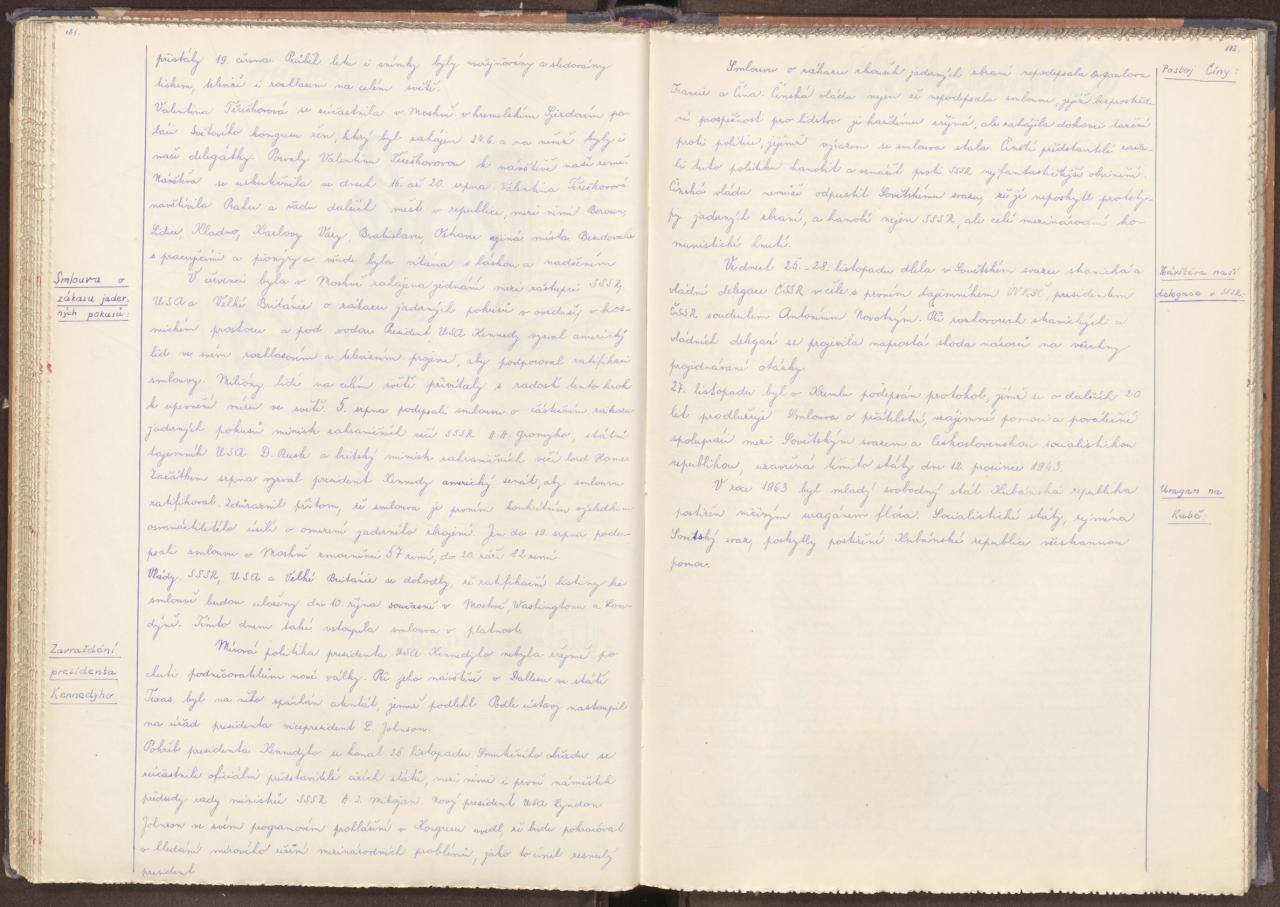 181.
přistály 19. června. Průběh letu i snímky byly uveřejňovány a sledovány
tiskem, televizí i rozhlasem na celém světě.
Valentina Těreškovová se zúčastnila v Moskvě v kremelském Sjezdovém pa-
láci Světového kongresu žen, který byl zahájen 24.6. a na němž byly i
naše delegátky. Pozvaly Valentinu Těreškovovou k návštěvě naší země.
Návštěva se uskutečnila ve dnech 16. až 20. srpna. Valentina Těreškovová
navštívila Prahu a řadu dalších měst v republice, mezi nimi Beroun,
Lidice, Kladno, Karlovy Vary, Bratislavu, Ostravu a jiná místa. Besedovala
s pracujícími a pionýry a všude byla vítána s láskou a nadšením
Smlouva o
zákazu jader-
ných pokusů:
V červenci byla v Moskvě zahájena jednání mezi zástupci SSSR,
USA a Velké Británie o zákazu jaderných pokusů v ovzduší, v kos-
mickém prostoru a pod vodou. President USA Kennedy vyzval americký
lid ve svém rozhlasovém a televizním projevu, aby podporoval ratifikaci
smlouvy. Milióny lidí na celém světě přivítaly s radostí tento krok
k upevnění míru ve světě. 5. srpna podepsali smlouvu o částečném zákazu
jaderných pokusů ministr zahraničních věcí SSSR A. A. Gromyko, státní
tajemník USA D. Rusk a britský ministr zahraničních věcí lord Home.
Začátkem srpna vyzval president Kennedy americký senát, aby smlouvu
ratifikoval. Zdůraznil přitom, že smlouva je prvním konkrétním výsledkem
osmnáctiletého úsilí o omezení jaderného zbrojení. Jen do 19. srpna pode-
psali smlouvu v Moskvě zmocněnci 57 zemí, do 20. září 82 zemí
Vlády SSSR, USA a Velké Británie se dohodly, že ratifikační listiny ke
smlouvě budou uloženy dne 10. října současně v Moskvě, Washingtonu a Lon-
dýně. Tímto dnem také vstoupila smlouva v platnost.
Zavraždění
presidenta
Kennedyho
Mírová politika presidenta USA Kennedyho nebyla zřejmě po
chuti podněcovatelům nové války. Při jeho návštěvě v Dallasu ve státě
Texas byl na něho spáchán atentát, jemuž podlehl. Podle ústavy nastoupil
na úřad presidenta vicepresident L. Johnson.
Pohřeb presidenta Kennedyho se konal 25. listopadu. Smutečního obřadu se
zúčastnili oficiální představitelé cizích států, mezi nimi i první náměstek
předsedy rady ministrů SSSR A. I. Mikojan. Nový president USA Lyndon
Johnson ve svém programovém prohlášení v Kongresu uvedl, že bude pokračovat
v hledání mírového řešení mezinárodních problémů, jako to činil zesnulý
president.
182.
Postoj Číny:
Smlouvu o zákazu zkoušek jaderných zbraní nepodepsala degaulova
Francie a Čína. Čínská vláda nejen že nepodepsala smlouvu, jejíž bezprostřed-
ní prospěšnost pro lidstvo je každému zřejmá, ale zahájila dokonce tažení
proti politice, jejímž výrazem se smlouva stala. Čínští představitelé zača-
li tuto politiku hanobit a vznášet proti SSSR nejfantastičtější obvinění.
Čínská vláda nemůže odpustit Sovětskému svazu, že jí neposkytl prototy-
py jaderných zbraní, a hanobí nejen SSSR, ale celé mezinárodní ko-
munistické hnutí.
Návštěva naší
delegace v SSSR.
Ve dnech 25.-28. listopadu dlela v Sovětském svazu stranická a
vládní delegace ČSSR v čele s prvním tajemníkem ÚV KSČ, presidentem
ČSSR soudruhem Antonínem Novotným. Při rozhovorech stranických a
vládních delegací se projevila naprostá shoda názorů na všechny
projednávané otázky.
27. listopadu byl v Kremlu podepsán protokol, jímž se o dalších 20
let prodlužuje Smlouva o přátelství, vzájemné pomoci a poválečné
spolupráci mezi Sovětským svazem a Československou socialistickou
republikou, uzavřená těmito státy dne 12. prosince 1943.
Uragan na
Kubě:
V roce 1963 byl mladý svobodný stát Kubánská republika
postižen ničivým uragánem flóra. Socialistické státy, zejména
Sovětský svaz, poskytly postižené Kubánské republice všestrannou
pomoc.